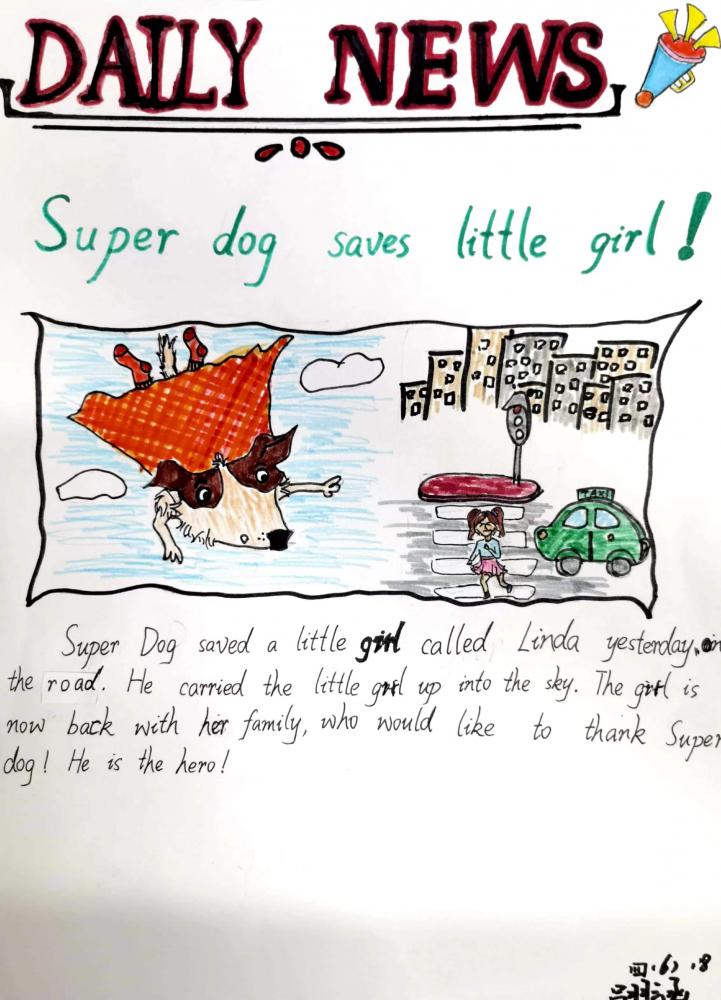 DAILY NEWS
Super dog saves little girl!
TAXI
Super Dog saved a little girl called Linda yesterday. on
the road. He carried the little girl up into the sky. The girl is
now back with her family, who would like to thank Super
dog! He is the hero!
四.(6) .8